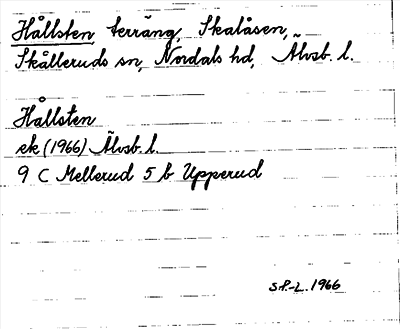 Hållsten, terräng, Skalåsen,
Skålleruds sn, Nordals hd, Älvsb. l.
Hållsten
ek (1966) Älvsb. l.
9 C Mellerud 5 b Upperud
SP.-L. 1966